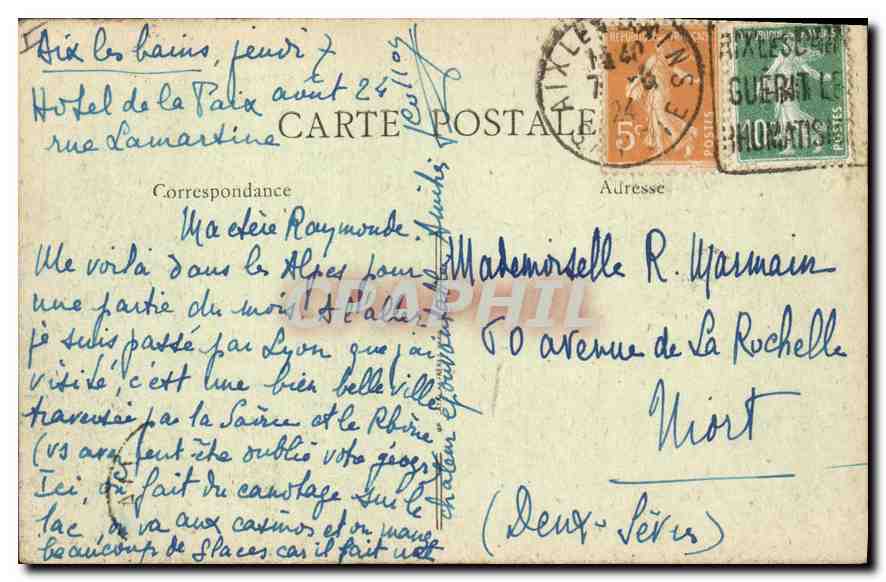 Aix les bains, jeudi 7
août 24
Hotel de la Paix
rue Lamartine
CARTE POSTALE
Correspondance
Adresse
Ma chère Raymonde.
Me voilà dans les Alpes pour
une partie du mois. A l'aller
je suis passé par Lyon que j'ai
visité, c'est une bien belle ville
traversée par la Saône et le Rhône
(vs avez peut être oublié votre géogr)
Ici, on fait du canotage sur le
lac, on va aux casinos et on mange
beaucoup de glaces car il fait une
chaleur épouvantable. Amitiés
Mademoiselle R. Marmain
60 avenue de La Rochelle
Niort
(Deux-Sèvres)
AIX LES BAINS
7 - 8
24
AIX LES BAINS
GUÉRIT LE
RHUMATISME
REPUBLIQUE FRANCAISE
5c
POSTES
10
POSTES
CPAPHIL